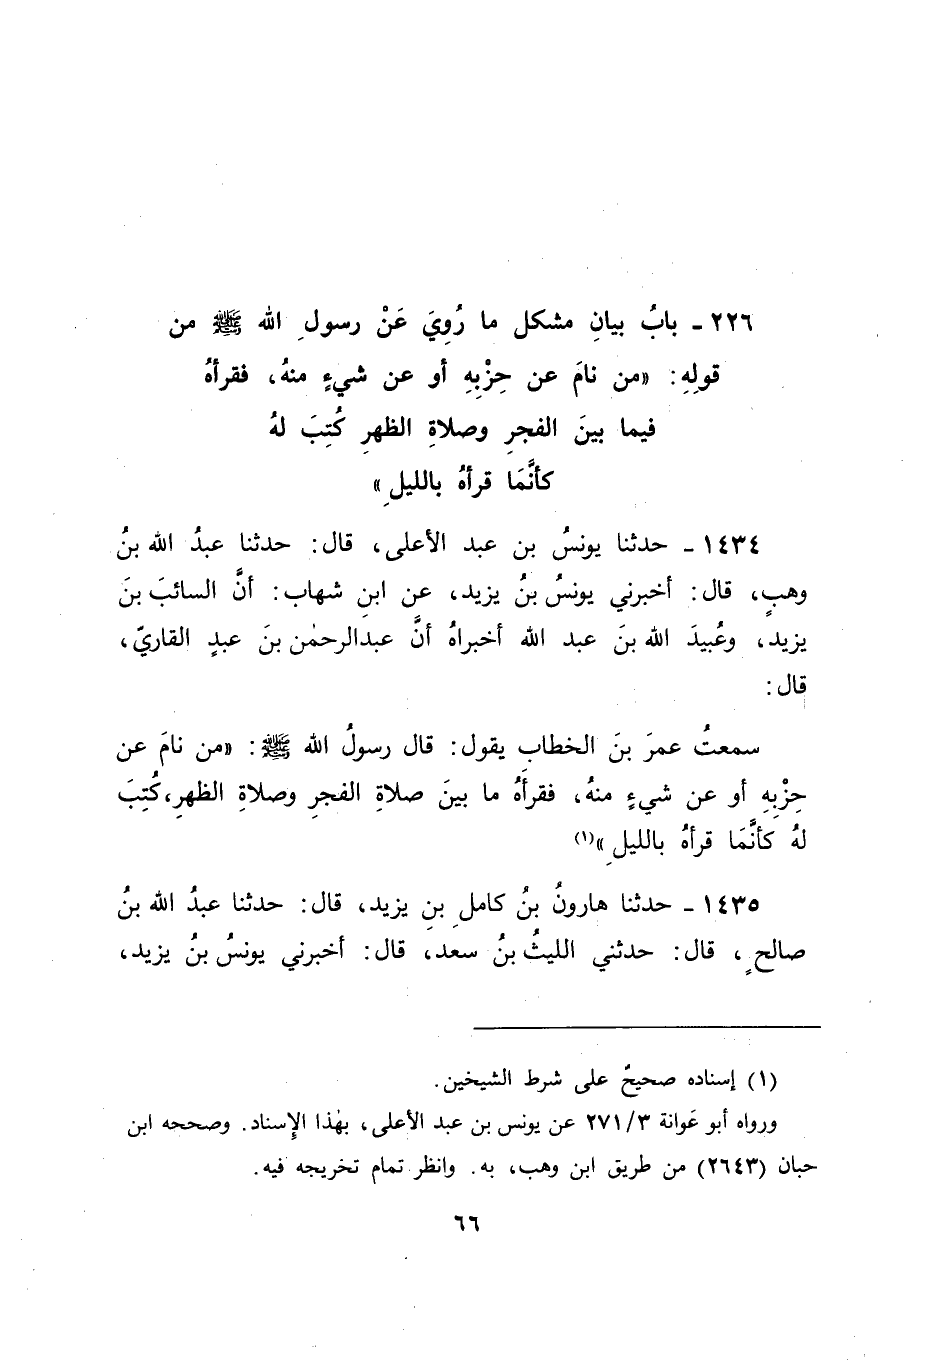 ٢٢٦ ـ بابُ بيانِ مشكل ما رُوِيَ عَنْ رسولِ الله ﷺ من
قولِهِ: «من نامَ عن حِزْبِهِ أو عن شيءٍ منهُ، فقرأهُ
فيما بينَ الفجرِ وصلاةِ الظهرِ كُتِبَ لهُ
كأنَّمَا قرأهُ بالليلِ»
١٤٣٤ ـ حدثنا يونسُ بن عبد الأعلى، قال: حدثنا عبدُ الله بنُ
وهبٍ، قال: أخبرني يونسُ بنُ يزيد، عن ابنِ شهاب: أنَّ السائبَ بنَ
يزيد، وعُبيدَ الله بنَ عبد الله أخبراهُ أنَّ عبدالرحمٰن بنَ عبدٍ القاريّ،
قال:
سمعتُ عمرَ بنَ الخطابِ يقول: قال رسولُ الله ﷺ: «من نامَ عن
حِزْبِهِ أو عن شيءٍ منهُ، فقرأَهُ ما بينَ صلاةِ الفجرِ وصلاةِ الظهرِ، كُتِبَ
لهُ كأنَّمَا قرأهُ بالليلِ»(١)
١٤٣٥ ـ حدثنا هارونُ بنُ كاملِ بنِ يزيد، قال: حدثنا عبدُ الله بنُ
صالحٍ، قال: حدثني الليثُ بنُ سعد، قال: أخبرني يونسُ بنُ يزيد،
(١) إسناده صحيحٌ على شرط الشيخين.
ورواه أبو عَوانة ٢٧١/٣ عن يونس بن عبد الأعلى، بهٰذا الإِسناد. وصححه ابن
حبان (٢٦٤٣) من طريق ابن وهب، به. وانظر تمام تخريجه فيه.
٦٦